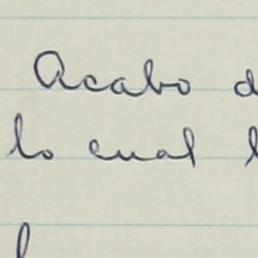 Acabo d
lo cual l